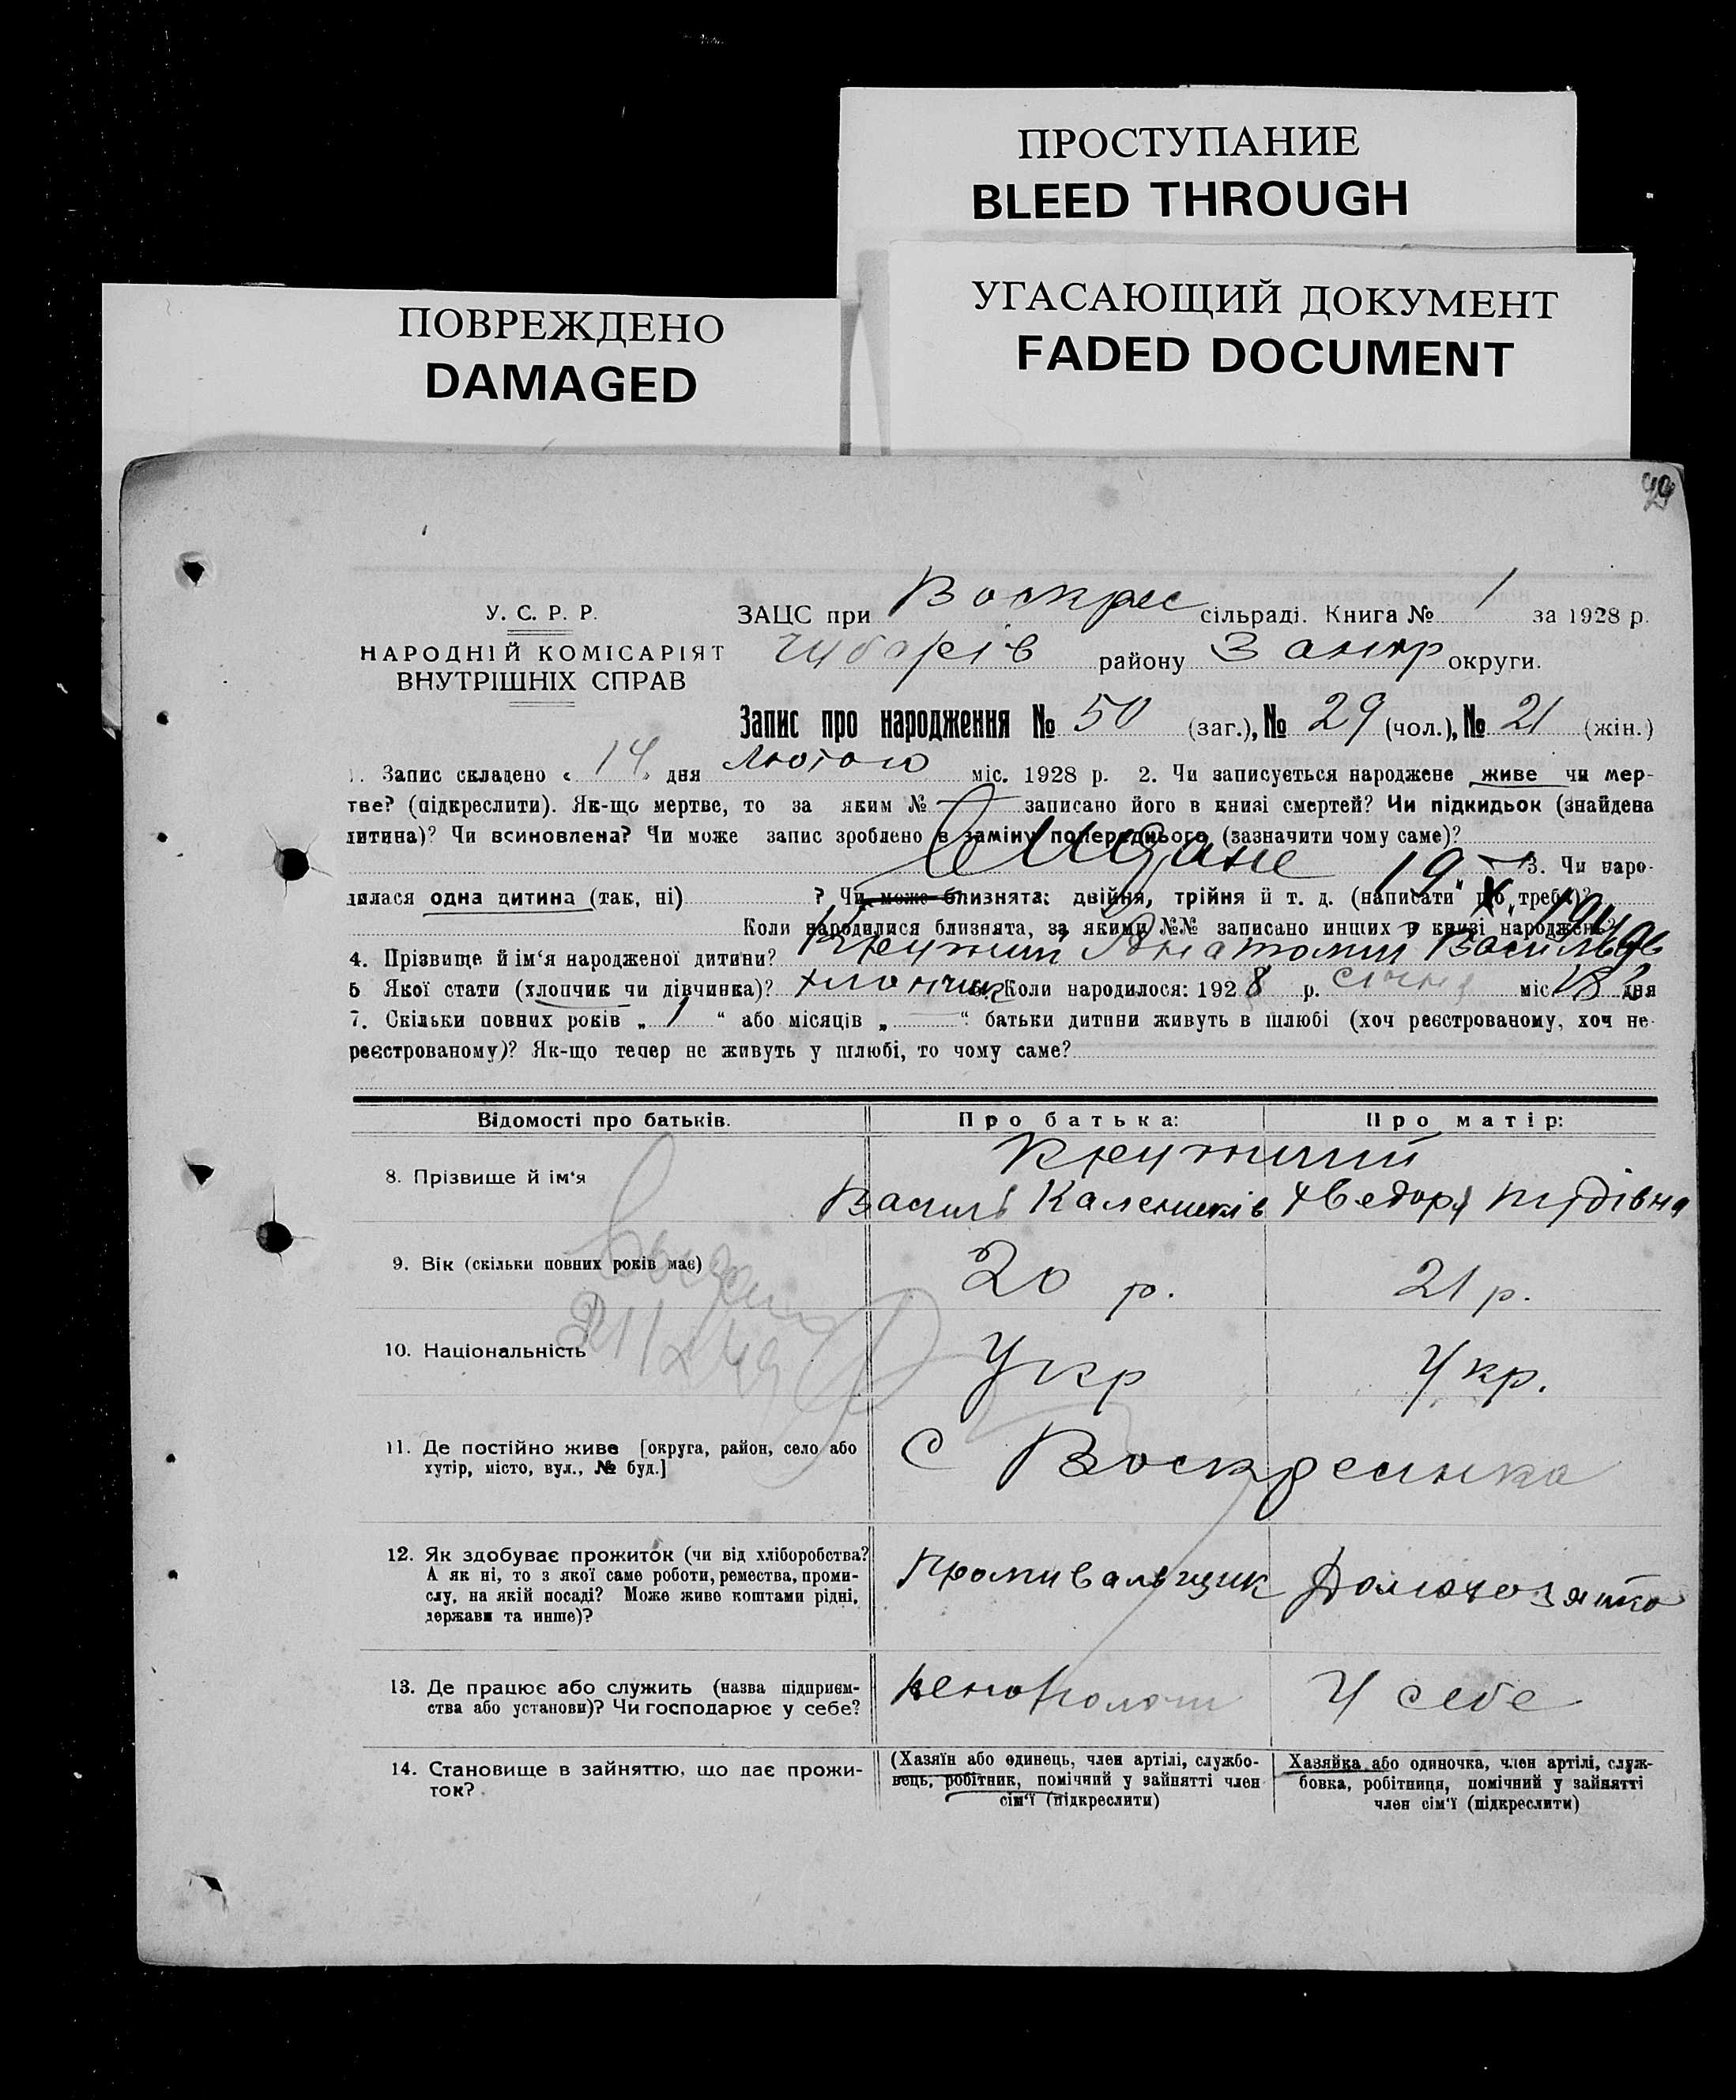 ПРОСТУПАНИЕ
BLEED THROUGH
УГАСАЮЩИЙ ДОКУМЕНТ
FADED DOCUMENT
ПОВРЕЖДЕНО
DAMAGED
У. С. Р. Р.
НАРОДНІЙ КОМІСАРІЯТ
ВНУТРІШНІХ СПРАВ
ЗАЦС при Воскрес сільраді. Книга № 1 за 1928 р.
Чубарів району Запор округи.
Запис про народження № 50 (заг.), № 29 (чол.), № 21 (жін.)
1. Запис складено « 14 » дня Лютого міс. 1928 р. 2. Чи записується народжене живе чи мер-
тве? (підкреслити). Як-що мертве, то за яким № записано його в книзі смертей? Чи підкидьок (знайдена
дитина)? Чи всиновлена? Чи може запис зроблено в заміну попереднього (зазначити чому саме)?
3. Чи наро-
дилася одна дитина (так, ні) ? Чи може близнята: двійня, трійня й т. д. (написати що треба)?
Коли народилися близнята, за якими №№ записано инших в книзі народжень?
4. Прізвище й ім‘я народженої дитини? Анатолий Васильев
5 Якої стати (хлопчик чи дівчинка)? хлопчик 6. Коли народилося: 1928 р. січня міс 18 дня
7. Скільки повних років „ 1 “ або місяців „ — “ батьки дитини живуть в шлюбі (хоч реєстрованому, хоч не-
реєстрованому)? Як-що тепер не живуть у шлюбі, то чому саме?
Відомості про батьків. Про батька: Про матір:
8. Прізвище й ім‘я
Василь Каленików Хведора
9. Вік (скільки повних років має) 20 р. 21 р.
10. Національність Укр Укр.
11. Де постійно живе [округа, район, село або
хутір, місто, вул., № буд.] С Воскресинка
12. Як здобуває прожиток (чи від хліборобства?
А як ні, то з якої саме роботи, ремества, проми-
слу, на якій посаді? Може живе коштами рідні,
держави та инше)? Промивальщик
13. Де працює або служить (назва підприєм-
ства або установи)? Чи господарює у себе? У себе
14. Становище в зайняттю, що дає прожи-
ток?
(Хазяїн або одинець, член артілі, службо-
вець, робітник, помічний у зайнятті член
сім‘ї (підкреслити)
Хазяйка або одиночка, член артілі, служ-
бовка, робітниця, помічний у зайнятті
член сім‘ї (підкреслити)